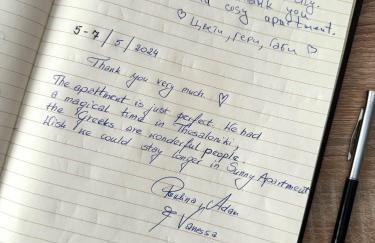 thank you
cosy apartment.
♡ Цвети, Гери, Габи ♡
5-7/5/2024
Thank you very much ♡
The apartment is just perfect. We had
a magical time in Thesaloniki,
the Greeks are wonderful people.
Wish we could stay longer in Sunny Apartment
Adam
& Vanessa